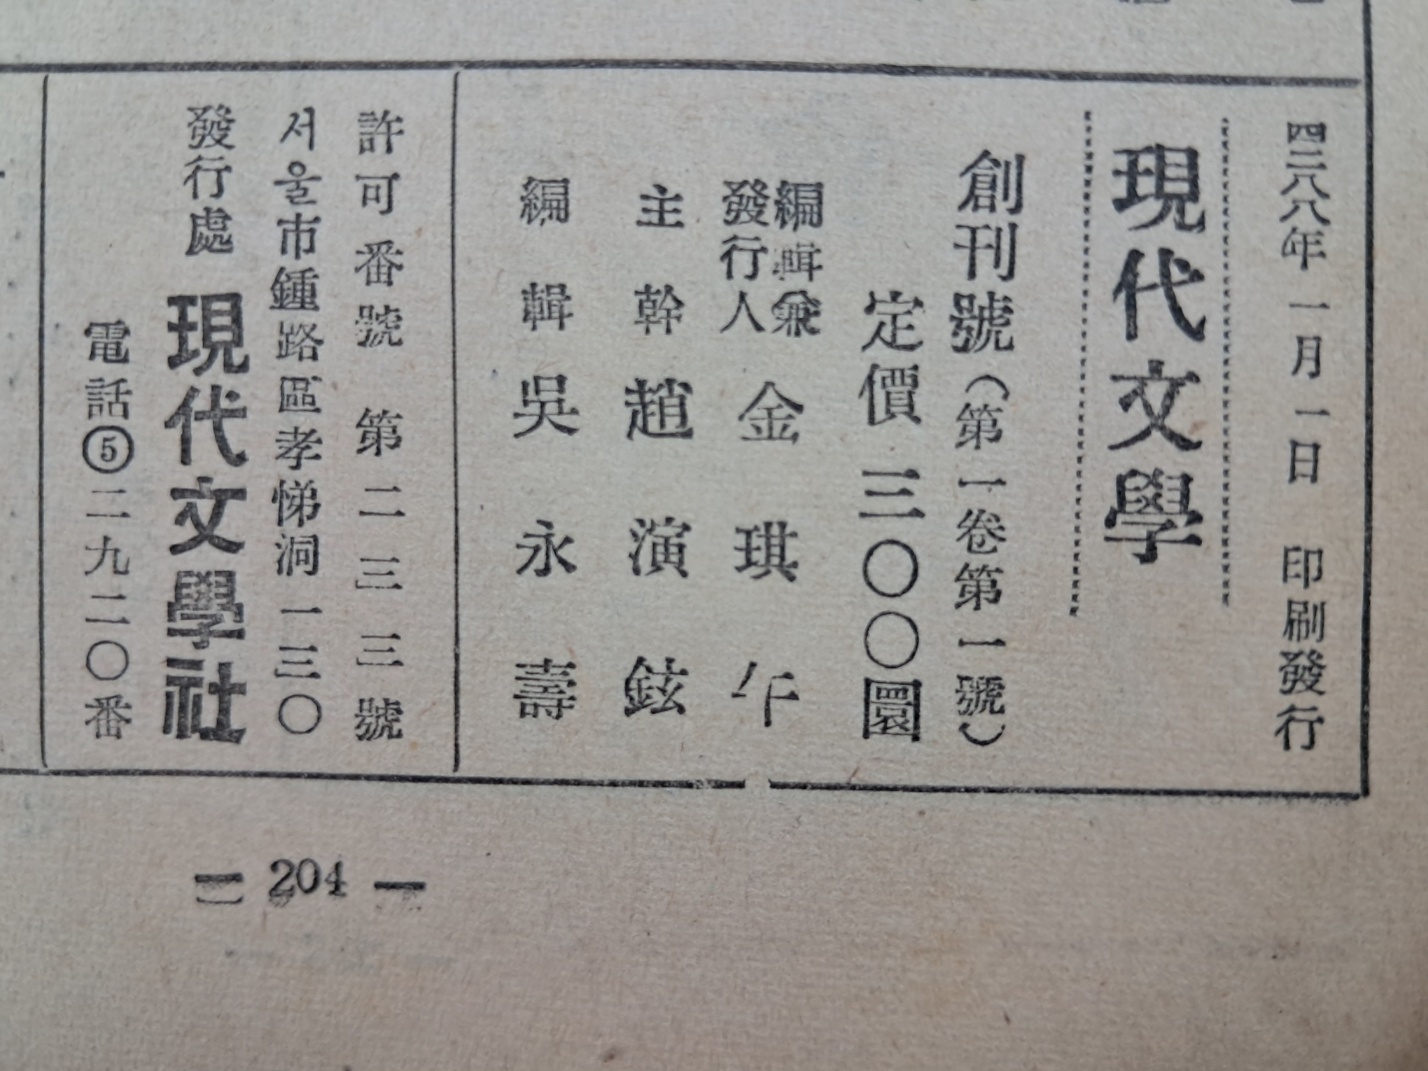 四二八八年 一月 一日 印刷發行
現代文學
創刊號 (第一卷第一號)
定價 三〇〇圜
編輯兼
發行人 金琪午
主幹 趙演鉉
編輯 吳永壽
許可番號 第二三三號
서울市鍾路區孝悌洞一三〇
發行處 現代文學社
電話⑤二九二〇番
— 204 —